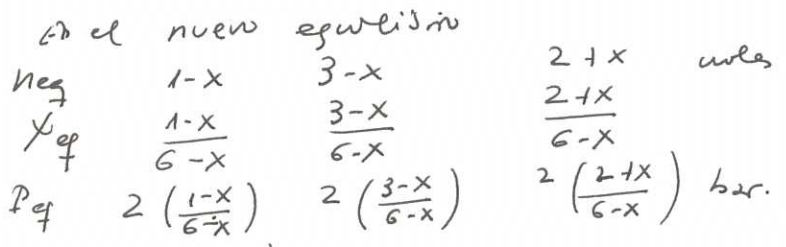 En el nuevo equilibrio
neq 1-x 3-x 2+x moles
Xeq (1-x)/(6-x) (3-x)/(6-x) (2+x)/(6-x)
Peq 2 ((1-x)/(6-x)) 2 ((3-x)/(6-x)) 2 ((2+x)/(6-x)) bar.